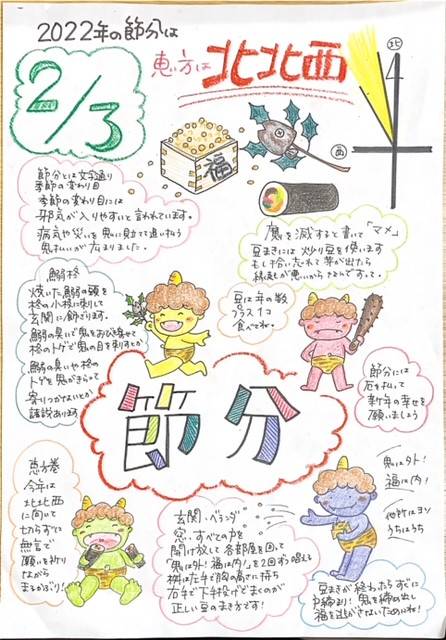 2022年の節分は
2/3
恵方は
北北西
北
西
福
節分とは文字通り
季節の変わり目
季節の変わり目には
邪気が入りやすいと言われています。
病気や災いを鬼に見立て追い払う
鬼払いが広まりました。
魔を滅すると書いて「マメ」
豆まきには炒り豆を使います
もし拾い忘れて芽が出たら
縁起が悪いからなんですって。
鰯柊
焼いた鰯の頭を
柊の小枝に刺して
玄関に飾ります。
鰯の臭いで鬼をおびき寄せて
柊のトゲで鬼の目を刺すとか
鰯の臭いや柊の
トゲを鬼がきらって
寄りつかないとか
諸説あります
豆は年の数
プラス1コ
食べてね。
節分には
厄を払って
新年の幸せを
願いましょう
節分
恵方巻
今年は
北北西
に向いて
切らずに
無言で
願いを祈り
ながら
まるかぶり!
玄関・ベランダ
窓・すべてのカを
開け放して各部屋を回って
「鬼は外!福は内!」を2回ずつ唱える
桝は左手で胸の高さに持ち
右手で下手投げでまくのが
正しい豆のまき方です!
鬼はソト!
福は内!
うちうち
豆まきが終わったらすぐに
戸締まり!鬼を締め出し
福を逃がさないためにね!